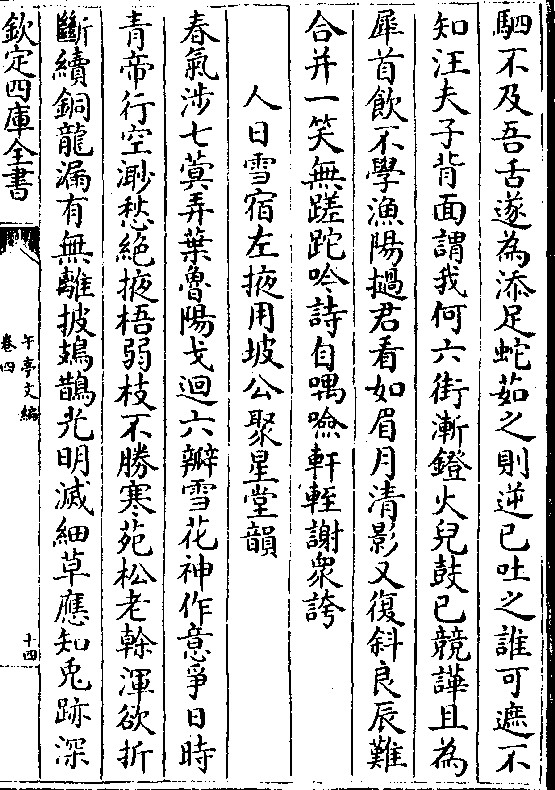 駟不及吾舌遂為添足蛇茹之則逆已吐之誰可遮不
知汪夫子背面謂我何六街漸鐙火兒鼓已競譁且為
犀首飲不學漁陽撾君看如眉月清影又復斜良辰難
合并一笑無蹉跎吟詩自喁噞軒輊謝衆誇
人日雪宿左掖用坡公聚星堂韻
春氣涉七蓂弄葉魯陽戈迴六瓣雪花神作意爭日時
青帝行空渺愁絶掖梧弱枝不勝寒苑松老榦渾欲折
斷續銅龍漏有無離披鳷鵲光明滅細草應知兎跡深
欽定四庫全書
午亭文編
卷四
十四